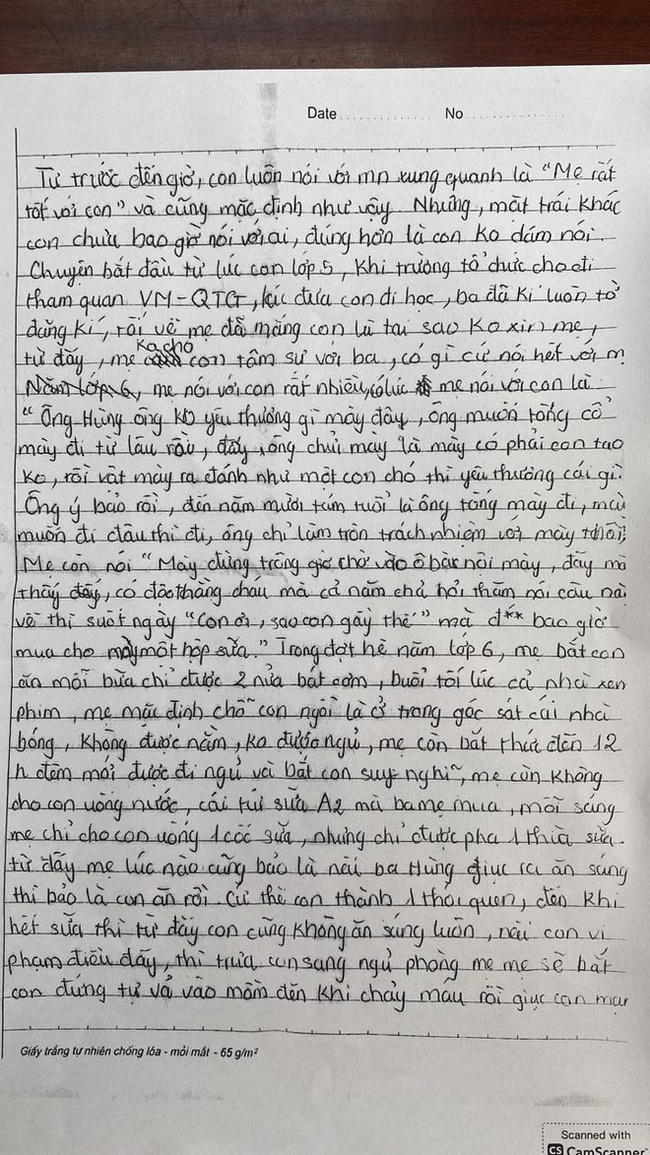 Date ............ No ...............
Từ trước đến giờ, con luôn nói với mn xung quanh là "Mẹ rất
tốt với con" và cũng mặc định như vậy. Nhưng, mặt trái khác
con chưa bao giờ nói với ai, đúng hơn là con ko dám nói.
Chuyện bắt đầu từ lúc con lớp 5, khi trường tổ chức cho đi
tham quan VM-QTG, lúc đưa con đi học, ba đã kí luôn tờ
đăng kí, rồi về mẹ đã mắng con là tại sao ko xin mẹ,
từ đấy, mẹ ko cho con tâm sự với ba, có gì cứ nói hết với m
Năm lớp 6, mẹ nói với con rất nhiều, có lúc mẹ nói với con là
"Ông Hùng ông ko yêu thương gì mày đâu, ông muốn tống cổ
mày đi từ lâu rồi, đấy, ông chửi mày là mày có phải con tao
ko, rồi vật mày ra đánh như một con chó thì yêu thương cái gì.
Ông ý bảo rồi, đến năm mười tám tuổi là ông tống mày đi, mày
muốn đi đâu thì đi, ông chỉ làm tròn trách nhiệm với mày thôi"
Mẹ còn nói "Mày đừng trông chờ vào ô bà nội mày, đấy mà
thấy đấy, có độc thằng cháu mà cả năm chả hỏi thăm nói câu nà
về thì suốt ngày "Con ơi, sao con gầy thế" mà đ** bao giờ
mua cho mày một hộp sữa." Trong đợt hè năm lớp 6, mẹ bắt con
ăn mỗi bữa chỉ được 2 nửa bát cơm, buổi tối lúc cả nhà xem
phim, mẹ mặc định chỗ con ngồi là ở trong góc sát cái nhà
bóng, không được nằm, ko được ngủ, mẹ còn bắt thức đến 12
h đêm mới được đi ngủ và bắt con suy nghĩ, mẹ còn không
cho con uống nước, cái túi sữa A2 mà ba mẹ mua, mỗi sáng
mẹ chỉ cho con uống 1 cốc sữa, nhưng chỉ được pha 1 thìa sữa.
từ đấy mẹ lúc nào cũng bảo là nếu ba Hùng giục ra ăn sáng
thì bảo là con ăn rồi. Cứ thế con thành 1 thói quen, đến khi
hết sữa thì từ đấy con cũng không ăn sáng luôn, nếu con vi
phạm điều đấy, thì trưa con sang ngủ phòng mẹ mẹ sẽ bắt
con đứng tự vả vào mồm đến khi chảy máu rồi giục con
Giấy trắng tự nhiên chống lóa - mỏi mắt - 65 g/m²
Scanned with
CS CamScanner